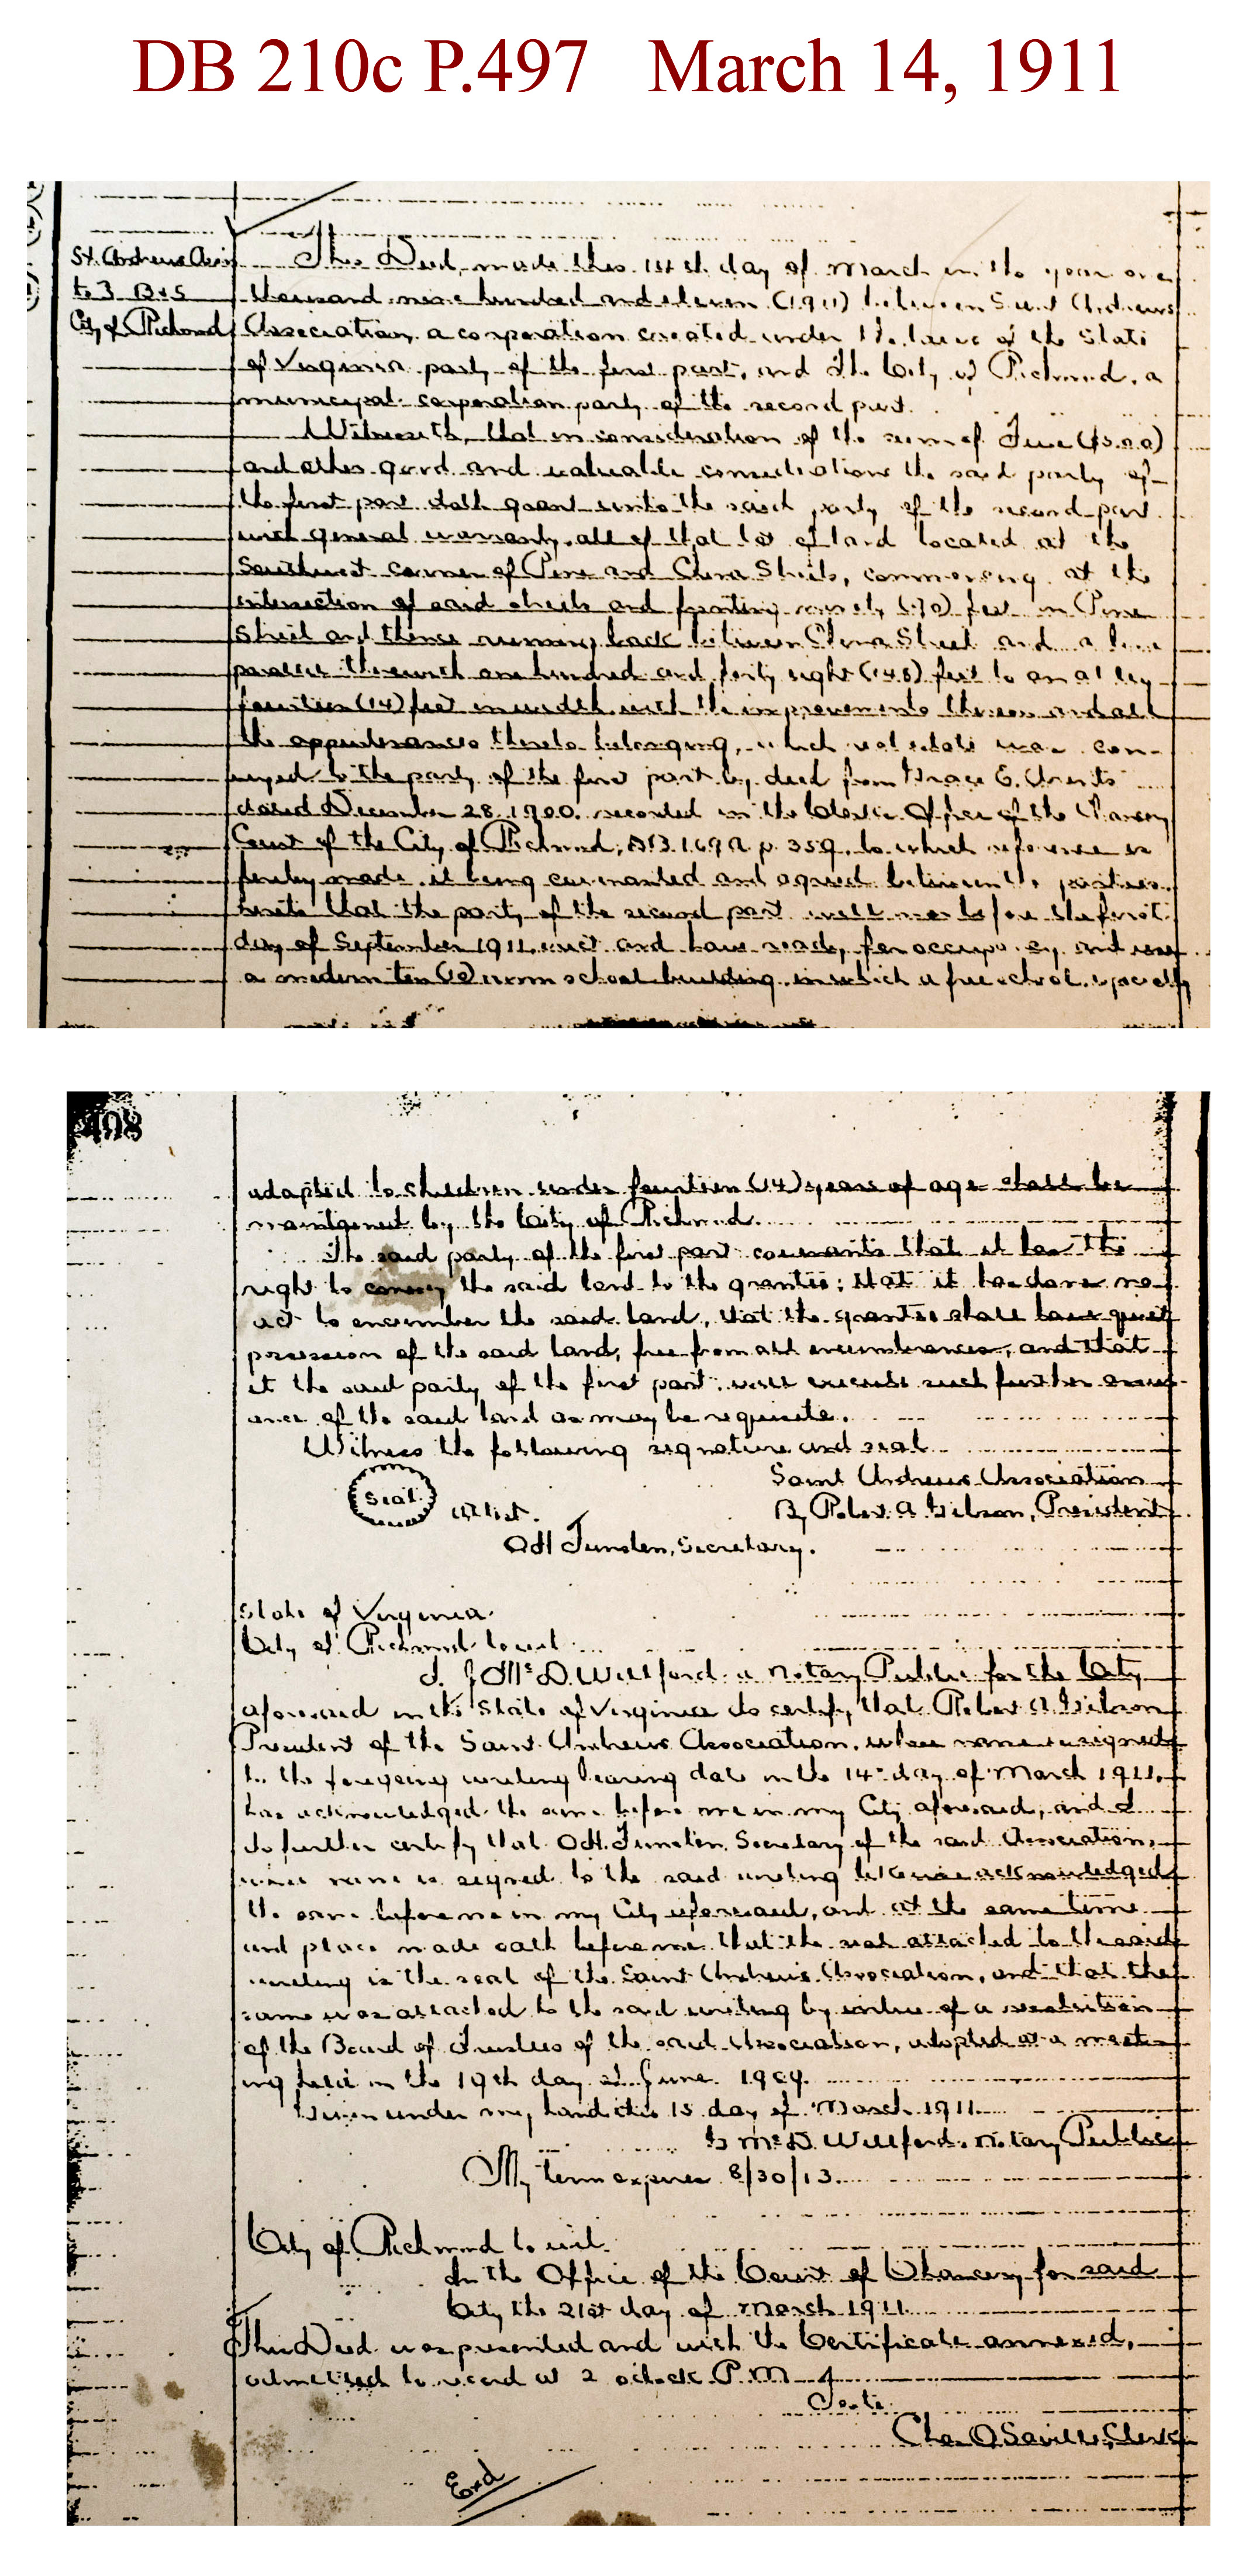 DB 210c P.497 March 14, 1911
St. Andrews Assn
to B & S
City of Richmond
This Deed, made this day of March in the year one
thousand nine hundred and eleven (1911) between Saint Andrews
Association, a corporation created under the laws of the State
of Virginia party of the first part, and the City of Richmond, a
municipal corporation party of the second part.
Witnesseth, that in consideration of the sum of Five ($5.00)
and other good and valuable considerations the said party of
the first part doth grant unto the said party of the second part
with general warranty, all of that lot of land located at the
corner of Pine and Streets, commencing at the
intersection of said streets and fronting ninety (90) feet on Pine
Street and thence running back between Street and a line
parallel therewith one hundred and forty eight (148) feet to an alley
fourteen (14) feet in width with the improvements thereon and all
the appurtenances thereto belonging, which real estate was con-
veyed to the party of the first part by deed from Grace E. Arents
dated December 28, 1900, recorded in the Clerk's Office of the Chancery
Court of the City of Richmond, D.B. 169 A p. 359, to which reference is
hereby made, it being covenanted and agreed between the parties
hereto that the party of the second part will on or before the first
day of September 1911 erect and have ready for occupancy and use
a modern ten (10) room school building in which a free school, specially
498
adapted to children under fourteen (14) years of age shall be
by the City of Richmond.
The said party of the first part covenants that it has the
right to convey the said land to the grantee; that it has done no
act to encumber the said land, that the grantee shall have quiet
possession of the said land, free from all encumbrances, and that
it the said party of the first part, will execute such further assur-
ances of the said land as may be requisite.
Witness the following signature and seal
Saint Andrews Association
Seal Attest. By Robt. A. Gibson, President
O H Funsten, Secretary.
State of Virginia
City of Richmond to wit:
I, J McD. Wellford, a Notary Public for the City
aforesaid in the State of Virginia do certify, that Robert A. Gibson
President of the Saint Andrews Association, whose name is signed
to the foregoing writing bearing date on the 14th day of March 1911,
has acknowledged the same before me in my City aforesaid, and I
do further certify that O.H. Funsten, Secretary of the said Association,
whose name is signed to the said writing likewise acknowledged
the same before me in my City aforesaid, and at the same time
and place made oath before me that the seal attached to the said
writing is the seal of the Saint Andrew's Association, and that the
same was attached to the said writing by virtue of a resolution
of the Board of Trustees of the said Association, adopted at a meet-
ing held on the 19th day of June 1909.
Given under my hand this 15 day of March 1911.
J McD. Wellford, Notary Public
My term expires 8/30/13.
City of Richmond to wit:
In the Office of the Court of Chancery for said
City the 21st day of March 1911
This Deed was presented and with the Certificate annexed,
admitted to record at 2 o'clock P.M
Teste:
Chas O Saville, Clerk
Exd